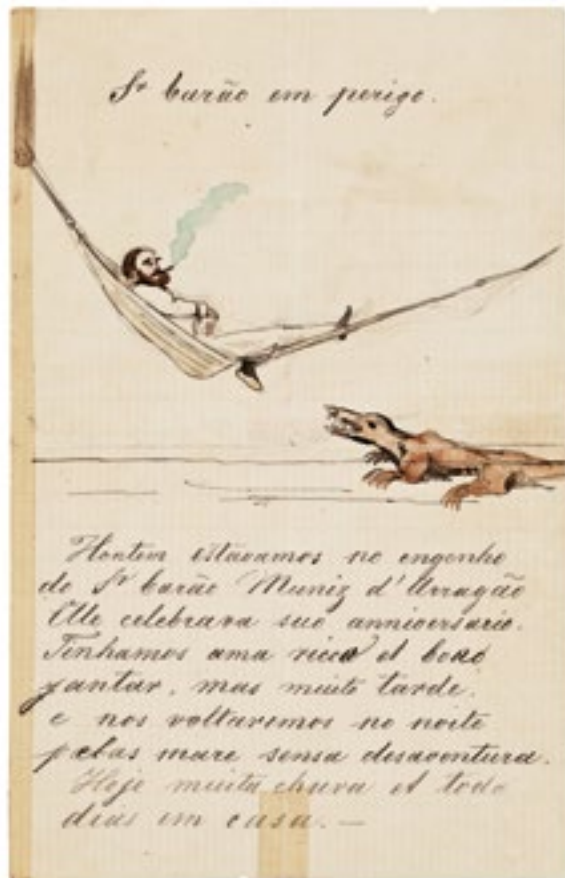 Sr barão em perigo.
Hontem estavamos no engenho
do Sr barão Muniz d'Arragão
Elle celebrava suo anniversario.
Tenhamos uma ricca et boao
yantar, mas muito tarde.
e nos voltaremos no noite
pelas mare sensa desaventura.
Hoje muita chuva et todo
dias em casa. —